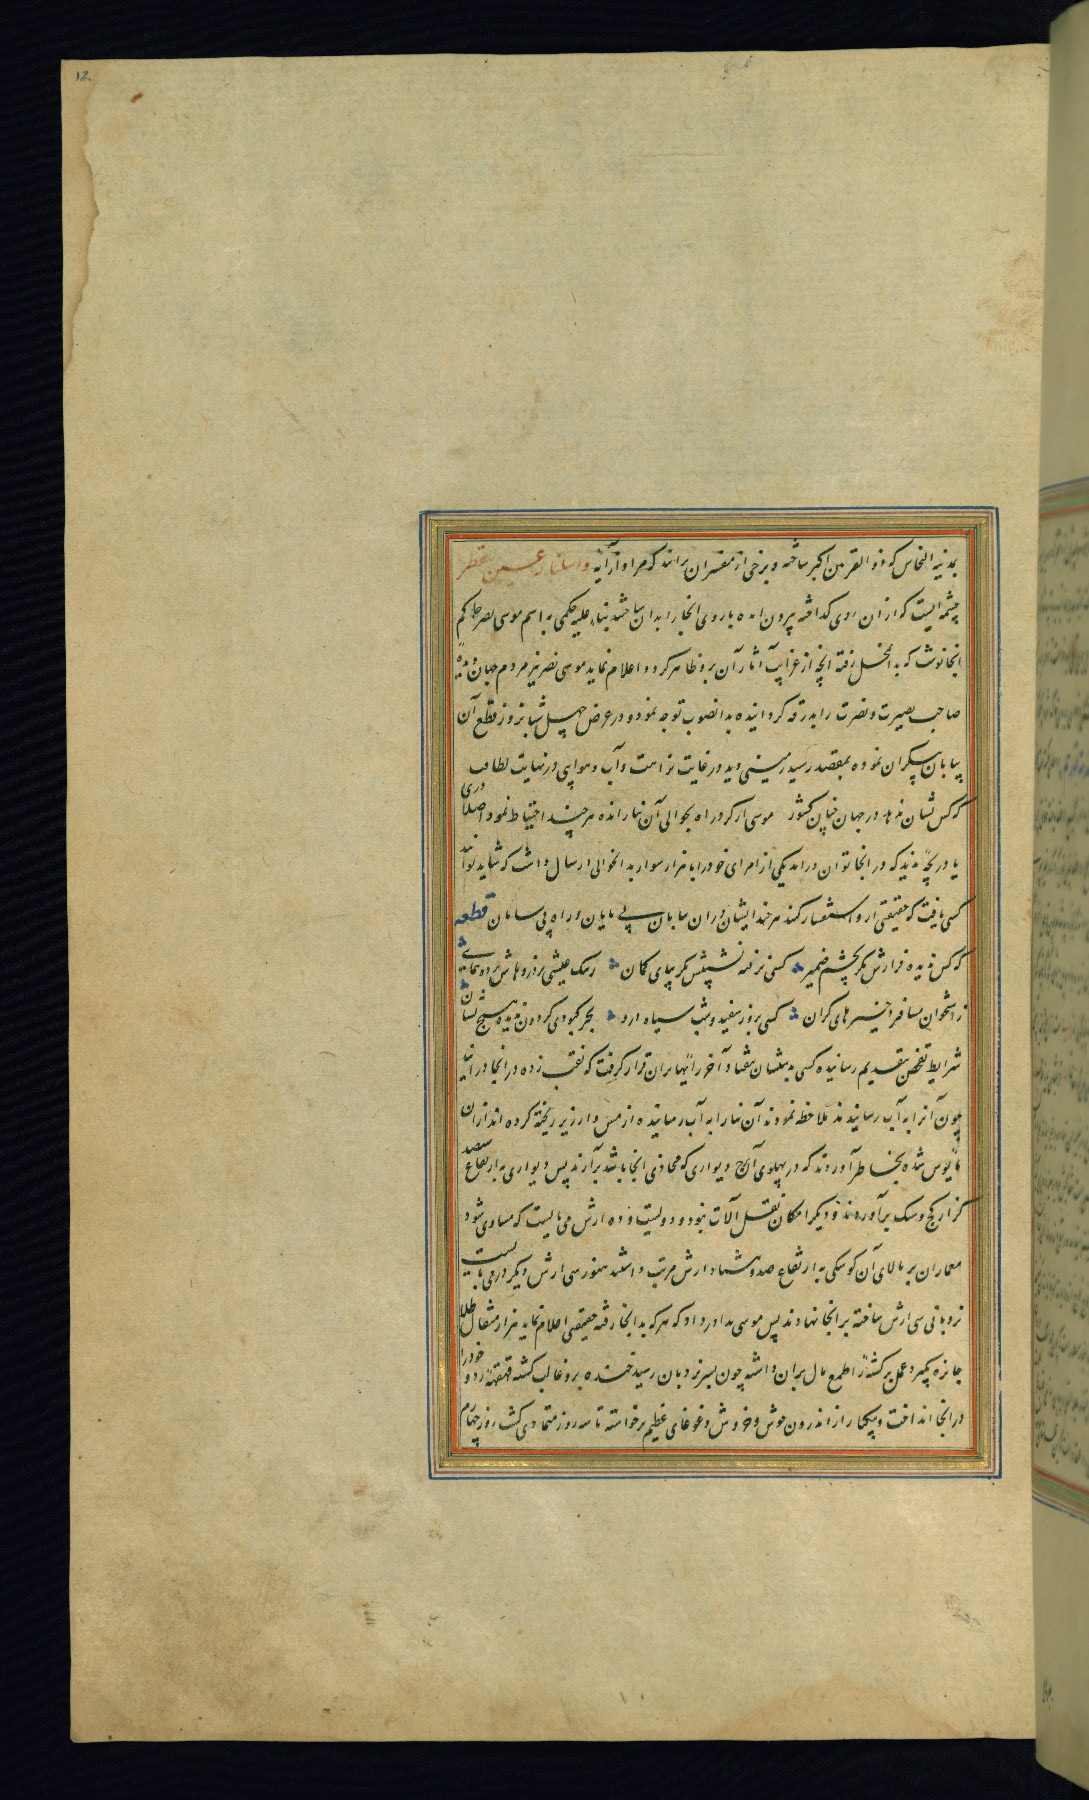 12
بمدینة النحاس که ذو القرنین اکبر ساخته و برخی از مفسران برانند که مراد از آیه و اسلنا له عین القطر
چشمه ایست که از ان روی گداخته بیرون آمده باروی انجا را بدان ساختند بناء علیه حکمی به اسم موسی نصر حاکم
انجا نوشت که بدانمحل رفته انچه از غرایب آثار آن برو ظاهر کردد اعلام نماید موسی نصر نیز مردم جهان دیده
صاحب بصیرت و نصرت را بدرقه کردانیده بدانصوب توجه نمود و در عرض چهل شبانروز قطع آن
بیابان بیکران نموده بمقصد رسید زمینی دید در غایت نزاهت و آب و هوایی در نهایت لطافت
که کس نشان ندهد در جهان چنان کشور موسی ار کرد راه بحوالی آن نبار انده هر چند احتیاط نمود اصلا دری
یا دریچه ندید که در انجا توان درامد یکی از امرای خود را با هزار سوار بدانحوالی ارسال داشت که شاید تواند
کسی یافت که حقیقتی ازو استفسار کنند هر چند ایشان دران بیابان بی پایان و راه بی سامان قطعه
که کس ندیده فرازش مکر بچشم ضمیر کسی نرفته نشیبش مکر بپای کمان
ز استخوان مسافر کسی بروز سفید و شب سیاه درو بجز کبودی کردون ندیده هیچ نشان
شرایط تفحص بتقدیم رسانیده کسی بدستشان نیفتاد آخر رأیها بران قرار کرفت که نقب زده در انجا درایند
چون آنرا به آب رسانیدند ملاحظه نمودند آن بنا را به آب رسانیده از مس و ارزیز ریخته کرده اند ازان
مأیوس شده بخاطر آوردند که در پهلوی آن برج دیواری که محاذی انجا باشد برآرند پس دیواری به ارتفاع سیصد
کز از کچ و سنک برآوردند و دیکر امکان نقل آلات نبود و دویست و ده ارش می بایست که مساوی شود
معماران بر بالای آن کوشکی به ارتفاع صد و هشتاد ارش مرتب داشتند هنوز سی ارش دیکر درمی بایست
نردبانی سی ارش ساخته بر انجا نهادند پس موسی ندا درداد که هر که بدانجا رفته حقیقتی اعلام نماید هزار مثقال طلا
جایزه بکیرد عمل برکشته را طمع مال بران داشته چون بسر نردبان رسید خنده برو غالب کشته قهقهه زد و خود را
در انجا انداخت و بیکبار از اندرون جوش و خروش و غوغای عظیم برخاسته تا سه روز متمادی کشت روز چهارم